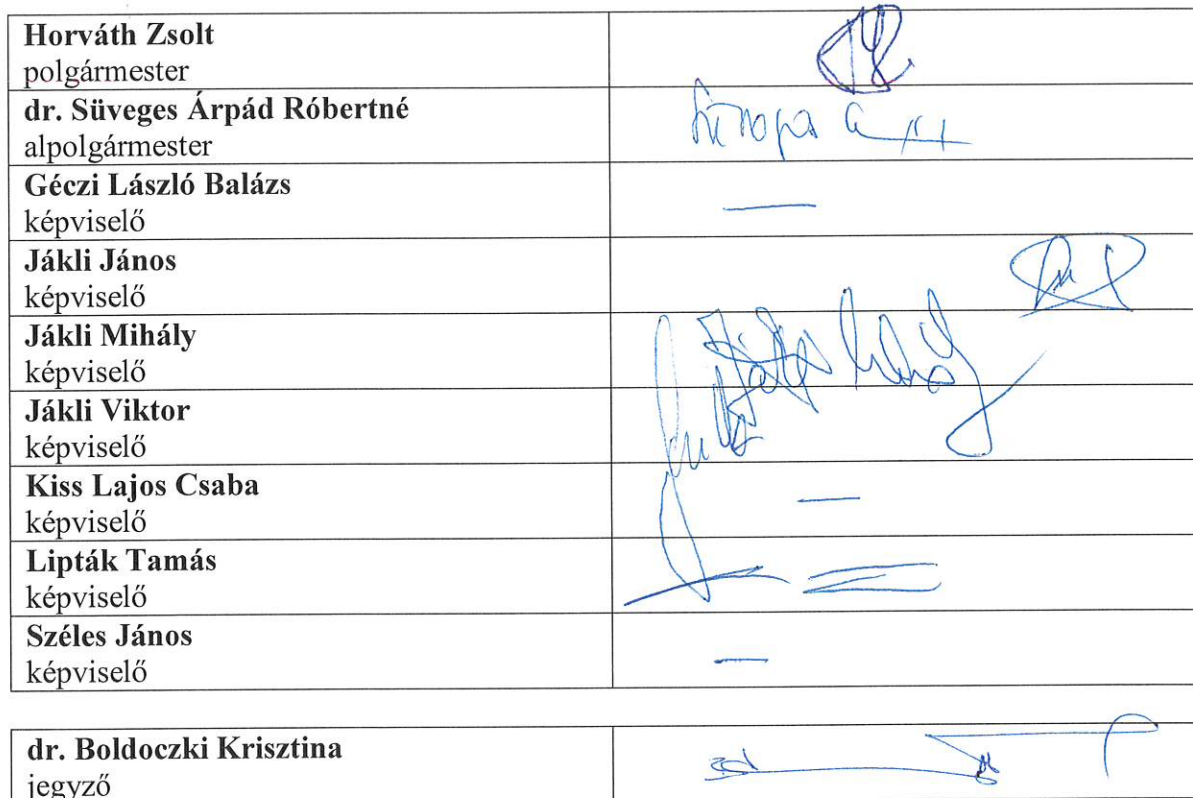 Horváth Zsolt
polgármester
dr. Süveges Árpád Róbertné
alpolgármester
Géczi László Balázs
képviselő
—
Jákli János
képviselő
Jákli Mihály
képviselő
Jákli Viktor
képviselő
Kiss Lajos Csaba
képviselő
—
Lipták Tamás
képviselő
Széles János
képviselő
—
dr. Boldoczki Krisztina
jegyző